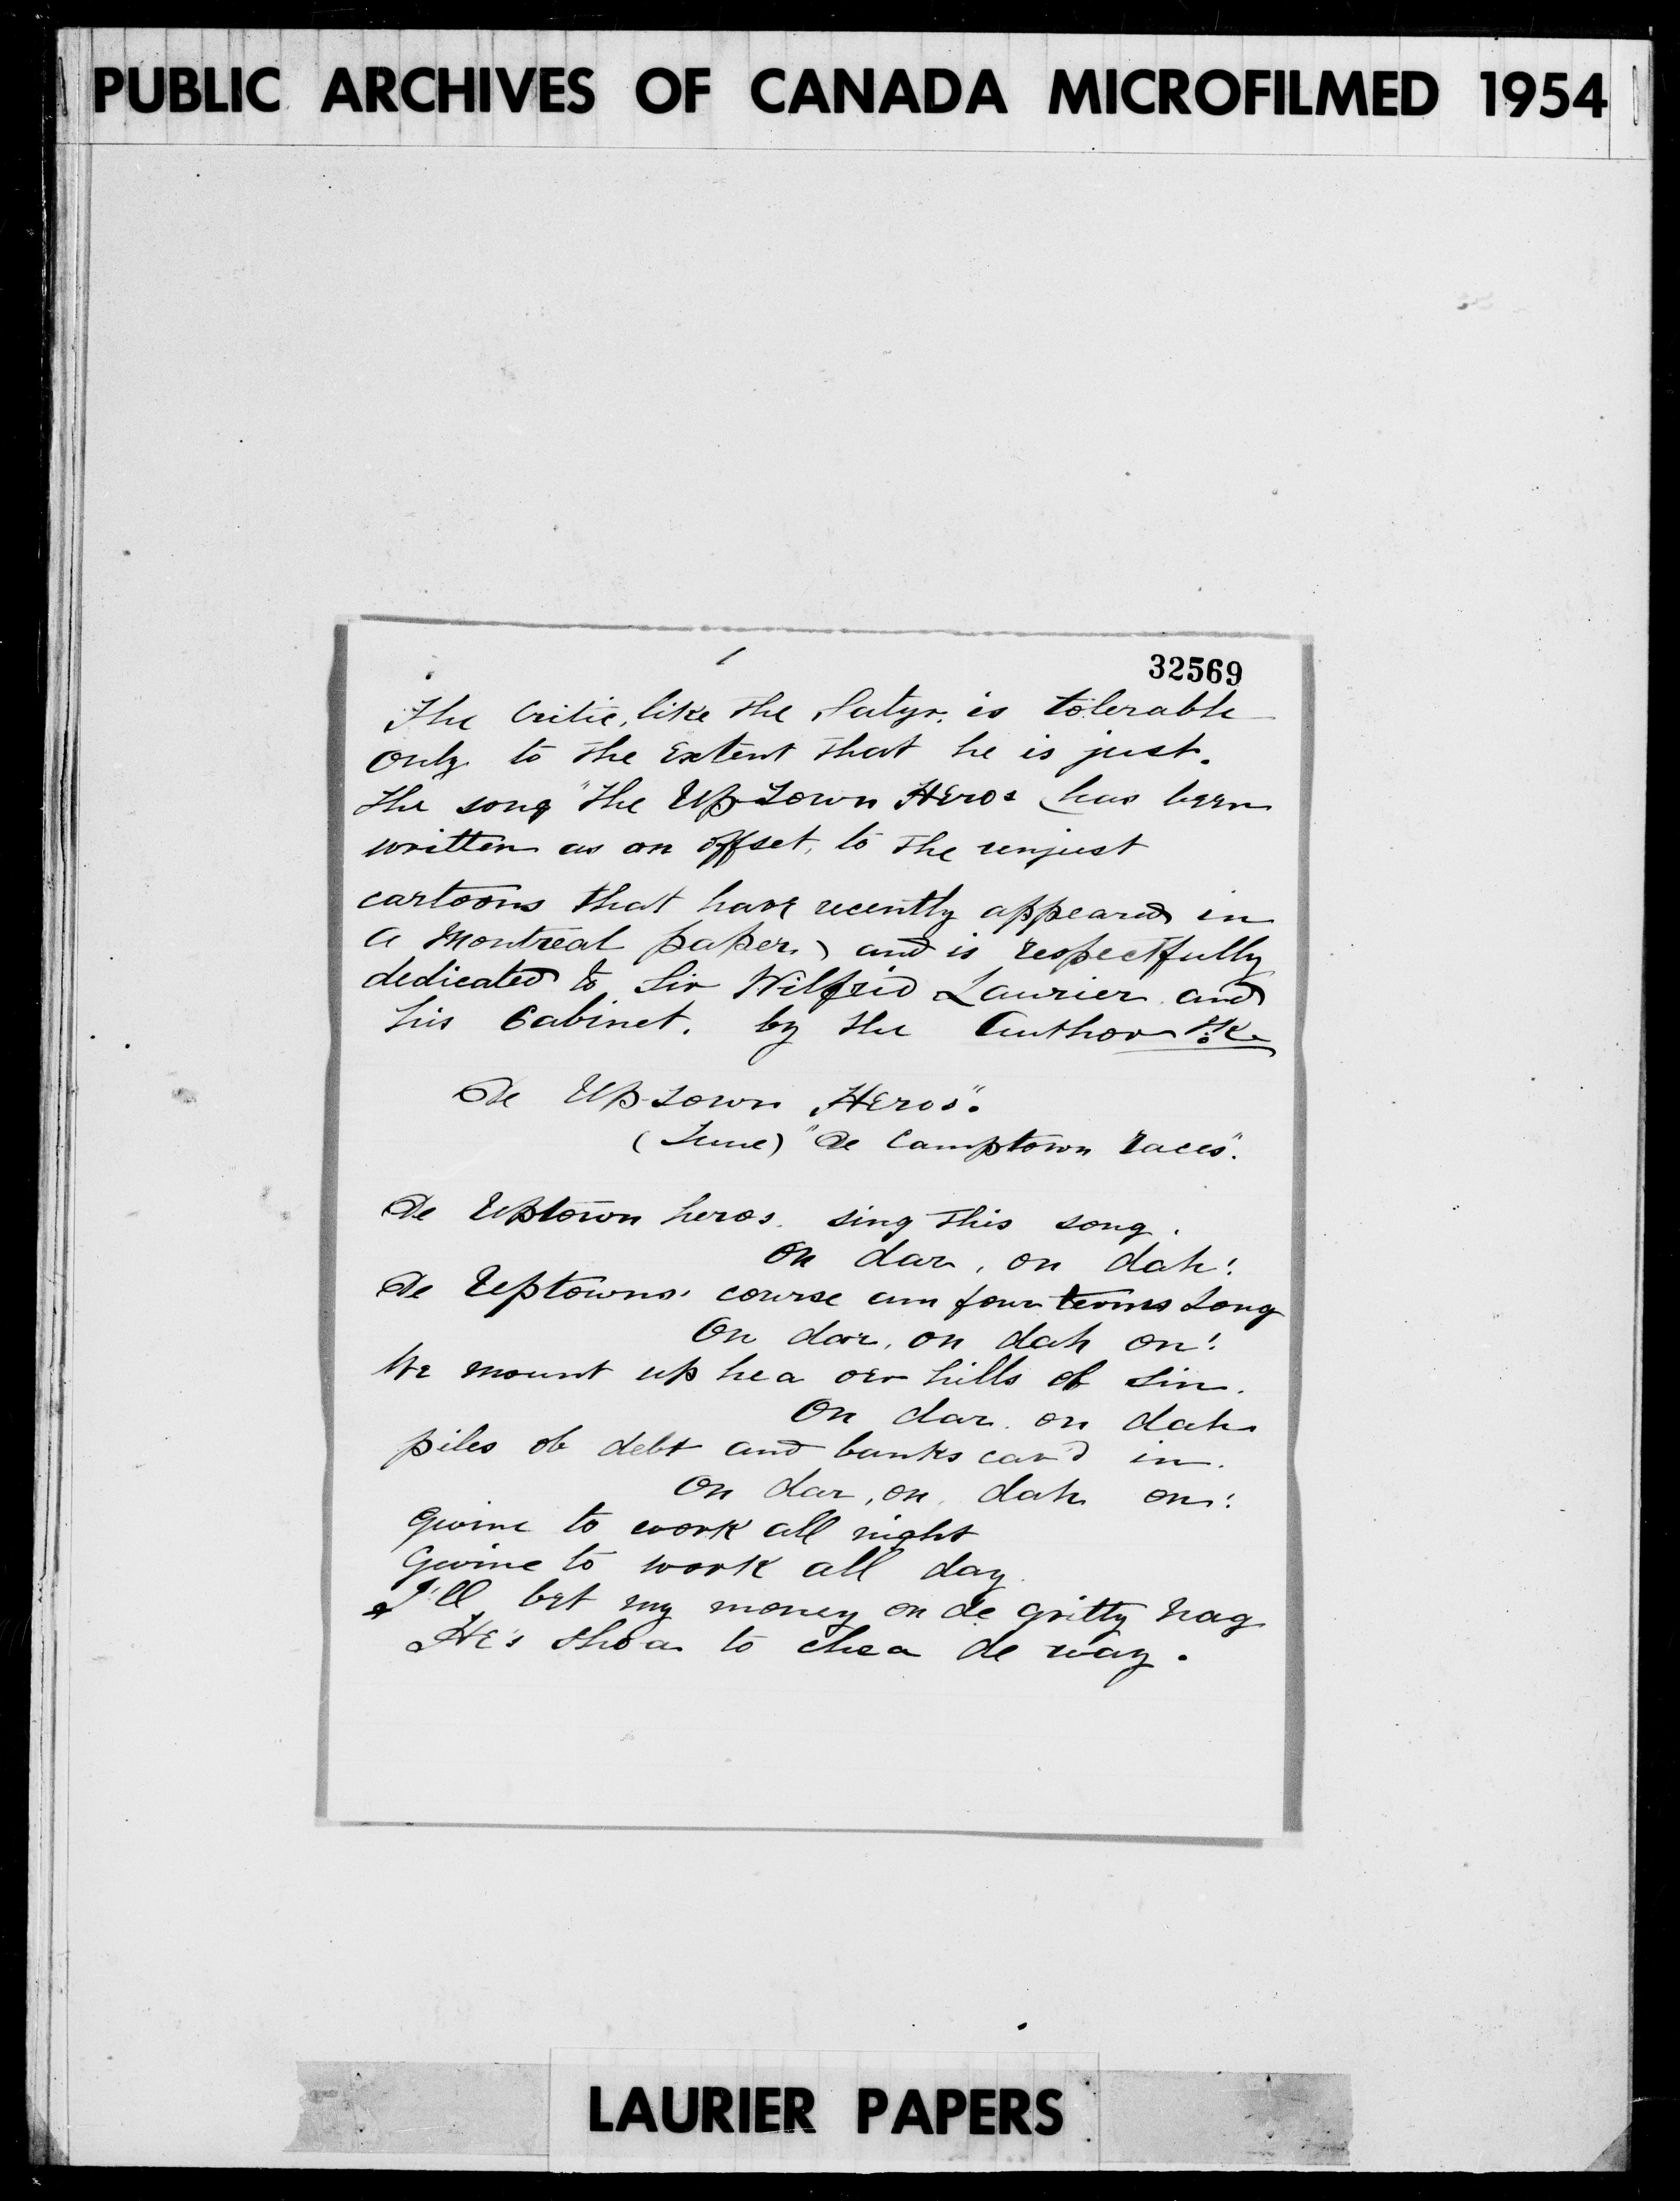 PUBLIC ARCHIVES OF CANADA MICROFILMED 1954
1
32569
The Critic, like the Satyr, is tolerable
only to the Extent that he is just.
The song "The Up-Town Heros has been
written as an offset, to the unjust
cartoons that have recently appeared in
a Montreal paper, and is respectfully
dedicated to Sir Wilfrid Laurier and
his Cabinet. by the Author
De Up-Town Heros".
(Tune) "De Camptown races".
De Uptown heros sing this song.
On dar, on dah!
De Uptowns' course am four terms Long
On dar, on dah on!
We mount up hea oer hills ob sin.
On dar. on dah
piles ob debt and banks cav'd in.
On dar, on, dah on!
Gwine to work all night
Gwine to work all day.
I'll bet my money on de gritty nag
He's shoa to clea de way.
LAURIER PAPERS